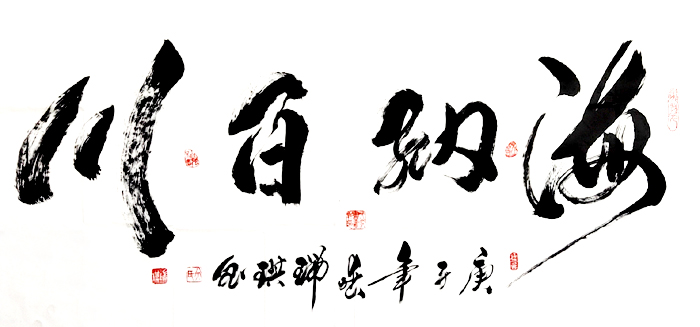 海纳百川
庚子年 瑞琪